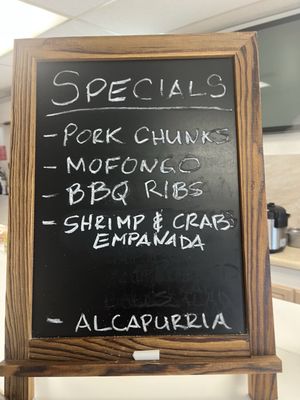 SPECIALS
- PORK CHUNKS
- MOFONGO
- BBQ RIBS
- SHRIMP & CRAB
EMPANADA
- ALCAPURRIA